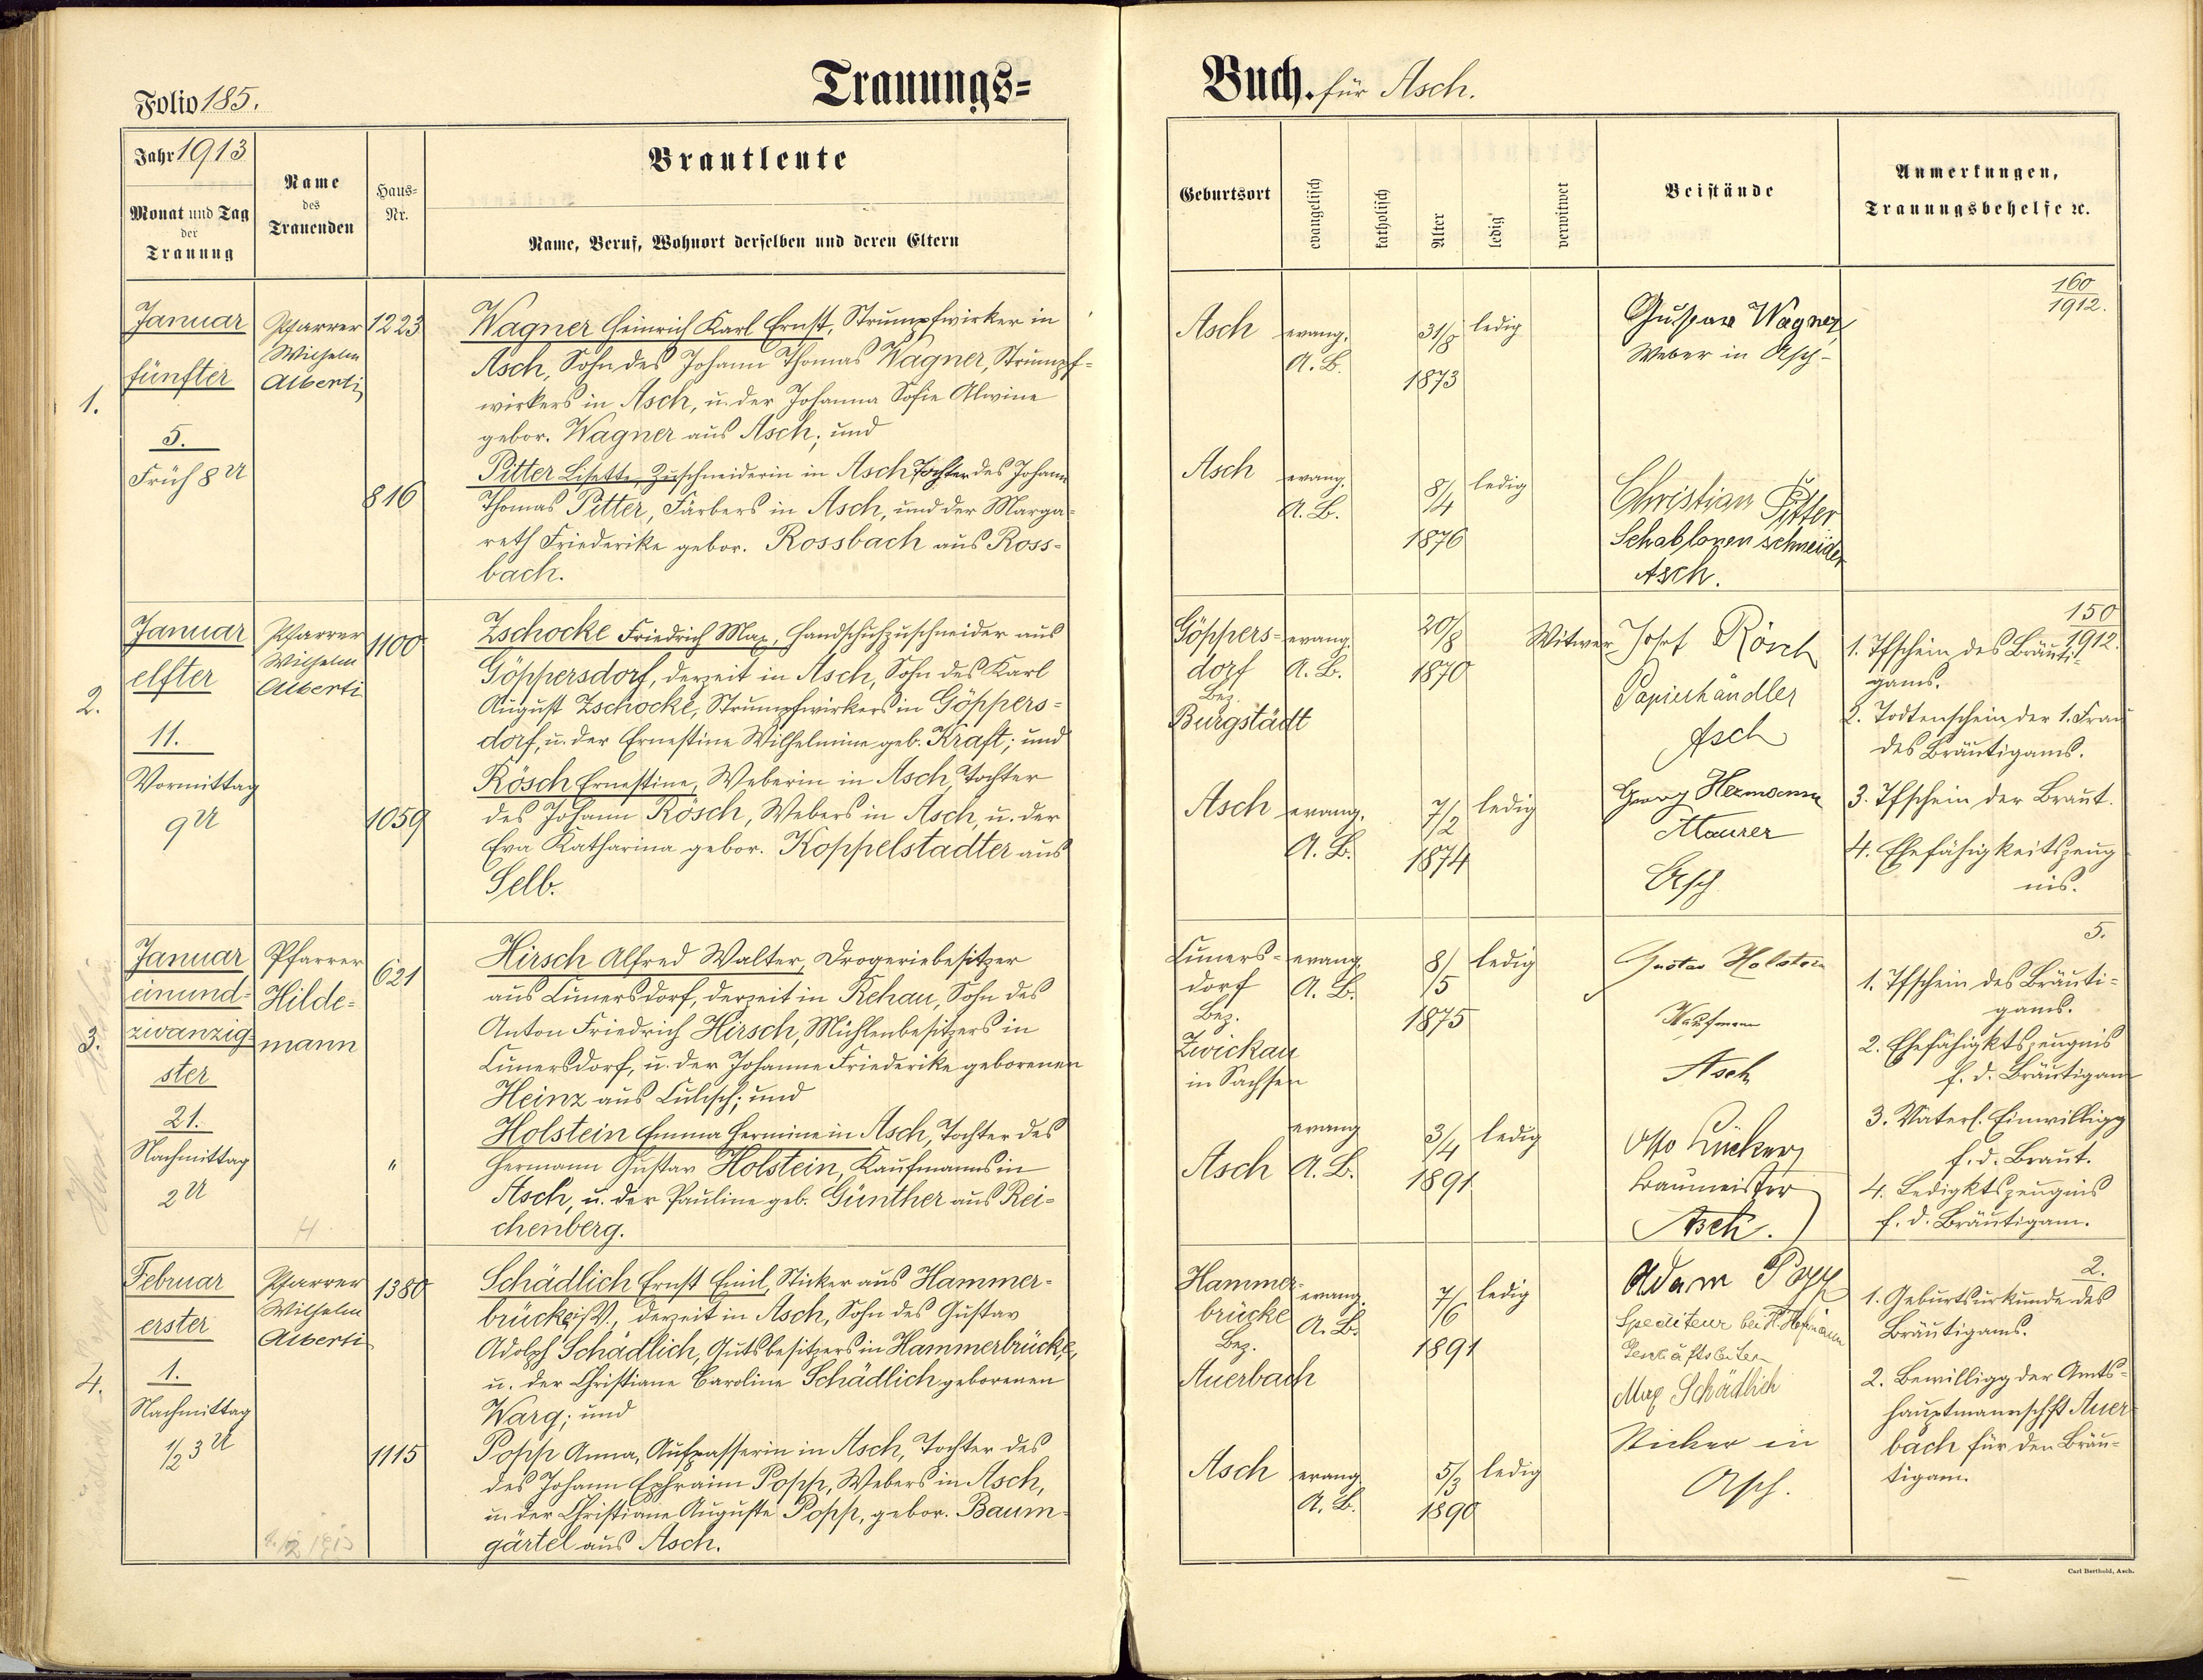 Folio 185.
Trauungs-
Buch. für Asch.
Jahr 1913
Monat und Tag
der
Trauung
Name
des
Trauenden
Haus-
Nr.
Brautleute
Name, Beruf, Wohnort derselben und deren Eltern
Geburtsort
evangelisch
katholisch
Alter
ledig
verwitwet
Beistände
Anmerkungen,
Trauungsbehelfe ec.
1.
Januar
fünfter
5.
Früh 8 U
Pfarrer
Wilhelm
Alberti
1223
Wagner Heinrich Karl Ernst, Strumpfwirker in
Asch, Sohn des Johann Thomas Wagner, Strumpf-
wirkers in Asch, u. der Johanna Sofie Alwine
gebor. Wagner aus Asch; und
816
Pitter Lisette, Zuschneiderin in Asch Tochter des Johann
Thomas Pitter, Färbers in Asch, und der Marga-
reth Friederike gebor. Rossbach aus Ross-
bach.
Asch
evang.
A. B.
31/8
1873
ledig
Gustav Wagner
Weber in Asch-
160
1912.
Asch
evang.
A. B.
8/4
1876
ledig
Christian Pitter
Schablonenschneider
Asch.
2.
Januar
elfter
11.
Vormittag
9 U
Pfarrer
Wilhelm
Alberti
1100
Zschocke Friedrich Max, Handschuhzuschneider aus
Göppersdorf, derzeit in Asch, Sohn des Karl
August Zschocke, Strumpfwirkers in Göppers-
dorf, u. der Ernestine Wilhelmine geb. Kraft; und
1059
Rösch Ernestine, Weberin in Asch, Tochter
des Johann Rösch, Webers in Asch, u. der
Eva Katharina gebor. Koppelstadter aus
Selb.
Göppers-
dorf
Bez.
Burgstädt
evang.
A. B.
20/8
1870
Witwer
Josef Rösch
Papierhändler
Asch
150
1912.
1. Tfschein des Bräuti-
gams.
2. Todtenschein der 1. Frau
des Bräutigams.
3. Tfschein der Braut.
4. Ehefähigkeitszeug
nis.
Asch
evang.
A. B.
7/2
1874
ledig
Georg Hermann
Maurer
Asch
3.
Januar
einund-
zwanzig-
ster
21.
Nachmittag
2 U
Pfarrer
Hilde-
mann
621
Hirsch Alfred Walter, Drogeriebesitzer
aus Cunersdorf, derzeit in Rehau, Sohn des
Anton Friedrich Hirsch, Mühlenbesitzers in
Cunersdorf, u. der Johanne Friederike geborenen
Heinz aus Culisch; und
"
Holstein Emma Hermine in Asch, Tochter des
Hermann Gustav Holstein, Kaufmanns in
Asch, u. der Pauline geb. Günther aus Rei-
chenberg.
Cuners-
dorf
Bez.
Zwickau
in Sachsen
evang.
A. B.
8/5
1875
ledig
Gustav Holstein
Kaufmann
Asch
5.
1. Tfschein des Bräuti-
gams.
2. Ehefähigktszeugnis
f. d. Bräutigam
3. Väterl. Einwilligg
f. d. Braut.
4. Ledigktszeugnis
f. d. Bräutigam.
Asch
evang
A. B.
3/4
1891
ledig
Baumeister
Asch.
4.
Februar
erster
1.
Nachmittag
1/2 3 U
Pfarrer
Wilhelm
Alberti
1380
Schädlich Ernst Emil, Sticker aus Hammer-
brücke i/V., derzeit in Asch, Sohn des Gustav
Adolph Schädlich, Gutsbesitzers in Hammerbrücke,
u. der Christiane Caroline Schädlich geborenen
Warg; und
1115
Popp Anna, Aufpasserin in Asch, Tochter des
des Johann Ephraim Popp, Webers in Asch,
u. der Christiane Auguste Popp, gebor. Baum-
gärtel aus Asch.
Hammer-
brücke
Bez.
Auerbach
evang.
A. B.
7/6
1891
ledig
Adam Popp
Spediteur bei
Max Schädlich
Sticker in
Asch.
2.
1. Geburtsurkunde des
Bräutigams.
2. Bewilligg der Amts-
hauptmannschft Auer-
bach für den Bräu-
tigam.
Asch
evang.
A. B.
5/3
1890
ledig
Carl Berthold, Asch.